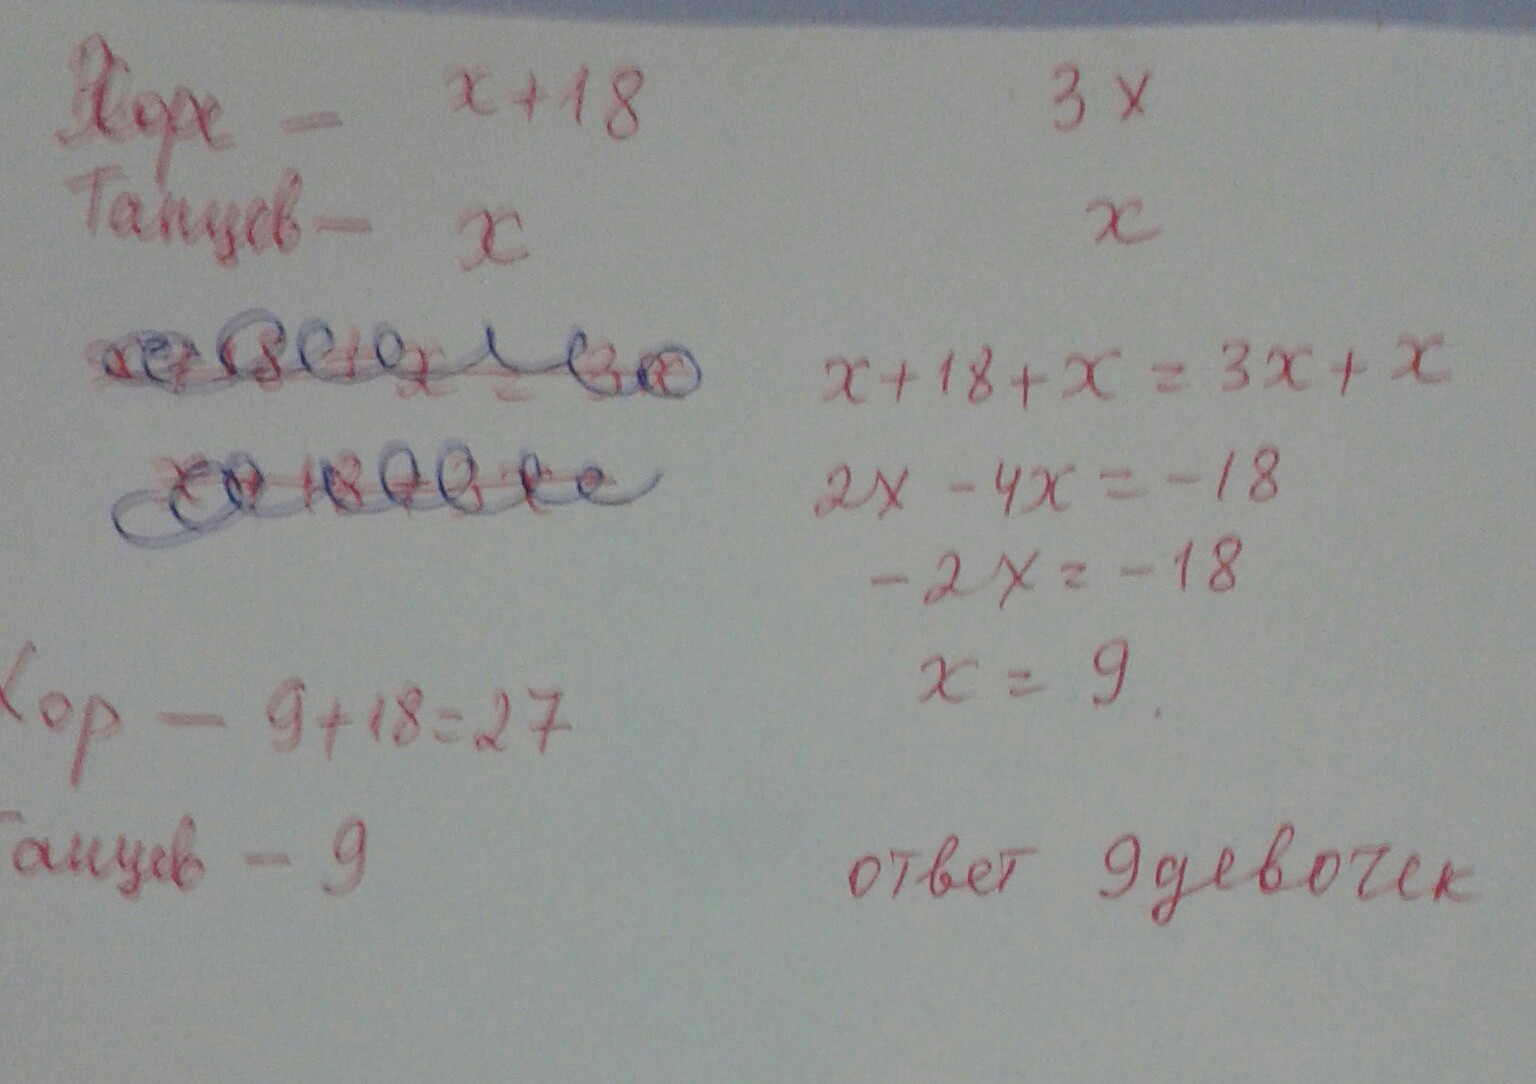 Хор — x+18 3x
Танцев — x x
x+18+x=3x+x
2x-4x=-18
-2x=-18
x=9.
Хор — 9+18=27
Танцев - 9
ответ 9девочек